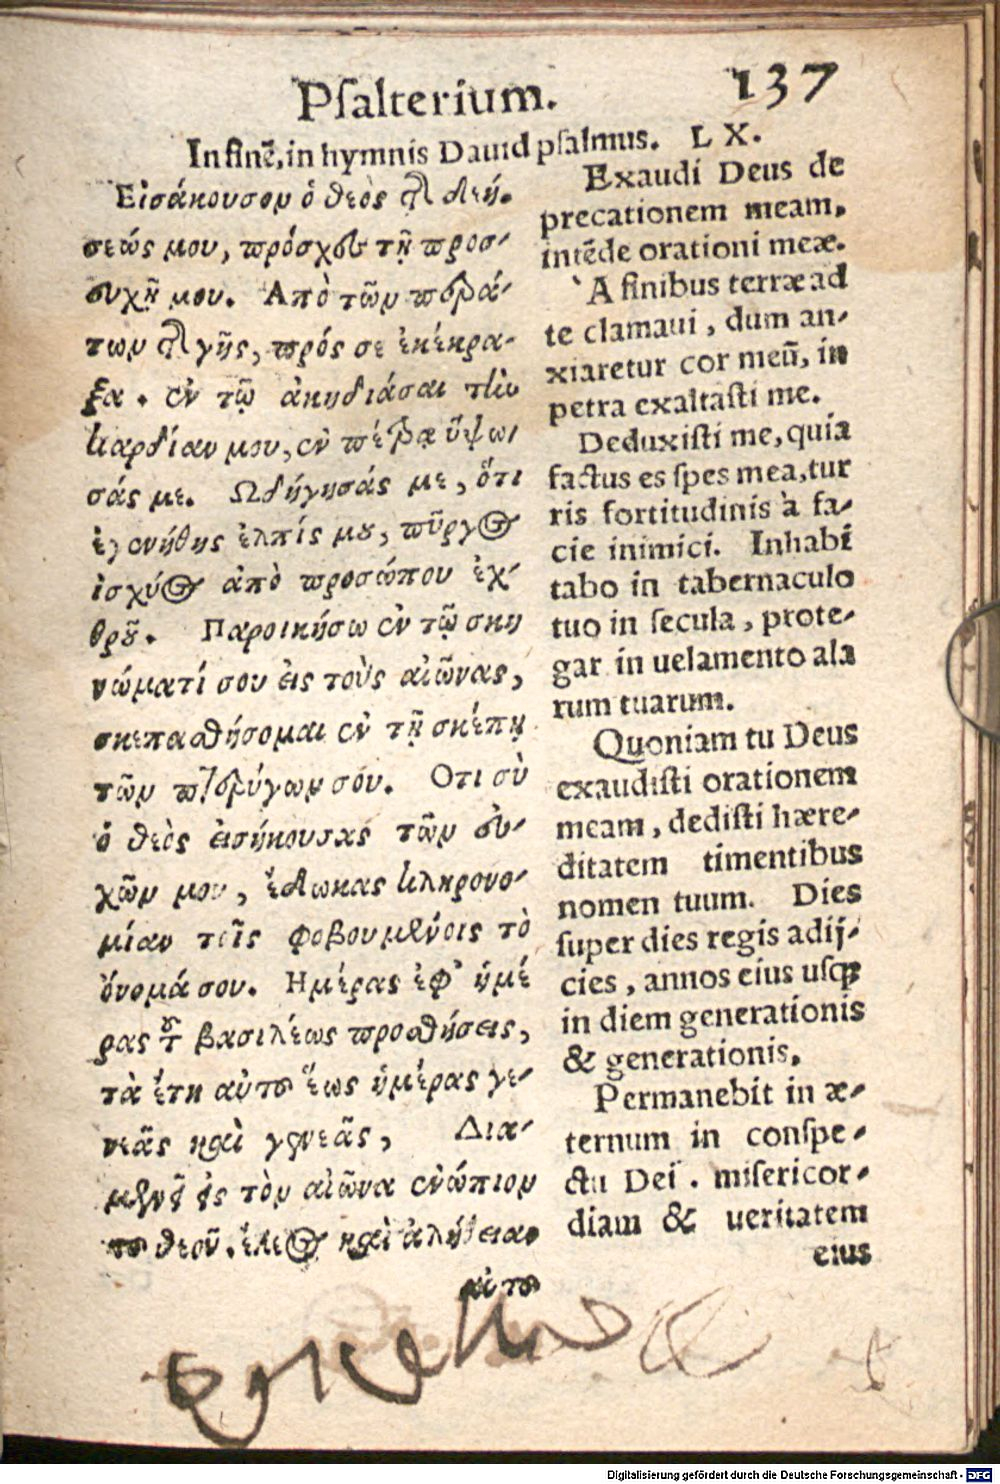 Psalterium. 137
In finē, in hymnis Dauid psalmus. LX.
Εἰσάκουσον ὁ θεὸς τῆς δεή-
σεώς μου, πρόσχες τῇ προσ-
ευχῇ μου. Ἀπὸ τῶν περά-
των τῆς γῆς, πρός σε ἐκέκρα-
ξα. ἐν τῷ ἀκηδιάσαι τὴν
καρδίαν μου, ἐν πέτρᾳ ὕψω-
σάς με. Ωδήγησάς με, ὅτι
ἐγενήθης ἐλπίς μου, πῦργος
ἰσχύος ἀπὸ προσώπου ἐχ-
θροῦ. Παροικήσω ἐν τῷ σκη
νώματί σου εἰς τοὺς αἰῶνας,
σκεπασθήσομαι ἐν τῇ σκέπῃ
τῶν πτερύγων σου. Οτι σὺ
ὁ θεὸς εἰσήκουσας τῶν εὐ-
χῶν μου, ἔδωκας κληρονο-
μίαν τοῖς φοβουμένοις τὸ
ὄνομά σου. Ημέρας ἐφ' ἡμέ
ρας τοῦ βασιλέως προσθήσεις,
τὰ ἔτη αὐτοῦ ἕως ἡμέρας γε-
νεᾶς καὶ γενεᾶς, Δια-
μενεῖ εἰς τὸν αἰῶνα ἐνώπιον
τοῦ θεοῦ. ἔλεος καὶ ἀλήθειαν
αὐτοῦ
Exaudi Deus de
precationem meam,
intēde orationi meæ.
A finibus terræ ad
te clamaui, dum an-
xiaretur cor meū, in
petra exaltasti me.
Deduxisti me, quia
factus es spes mea, tur
ris fortitudinis à fa-
cie inimici. Inhabi
tabo in tabernaculo
tuo in secula, prote-
gar in uelamento ala
rum tuarum.
Quoniam tu Deus
exaudisti orationem
meam, dedisti hære-
ditatem timentibus
nomen tuum. Dies
super dies regis adij-
cies, annos eius usq;
in diem generationis
& generationis.
Permanebit in æ-
ternum in conspe-
ctu Dei. misericor-
diam & ueritatem
eius
Digitalisierung gefördert durch die Deutsche Forschungsgemeinschaft - DFG